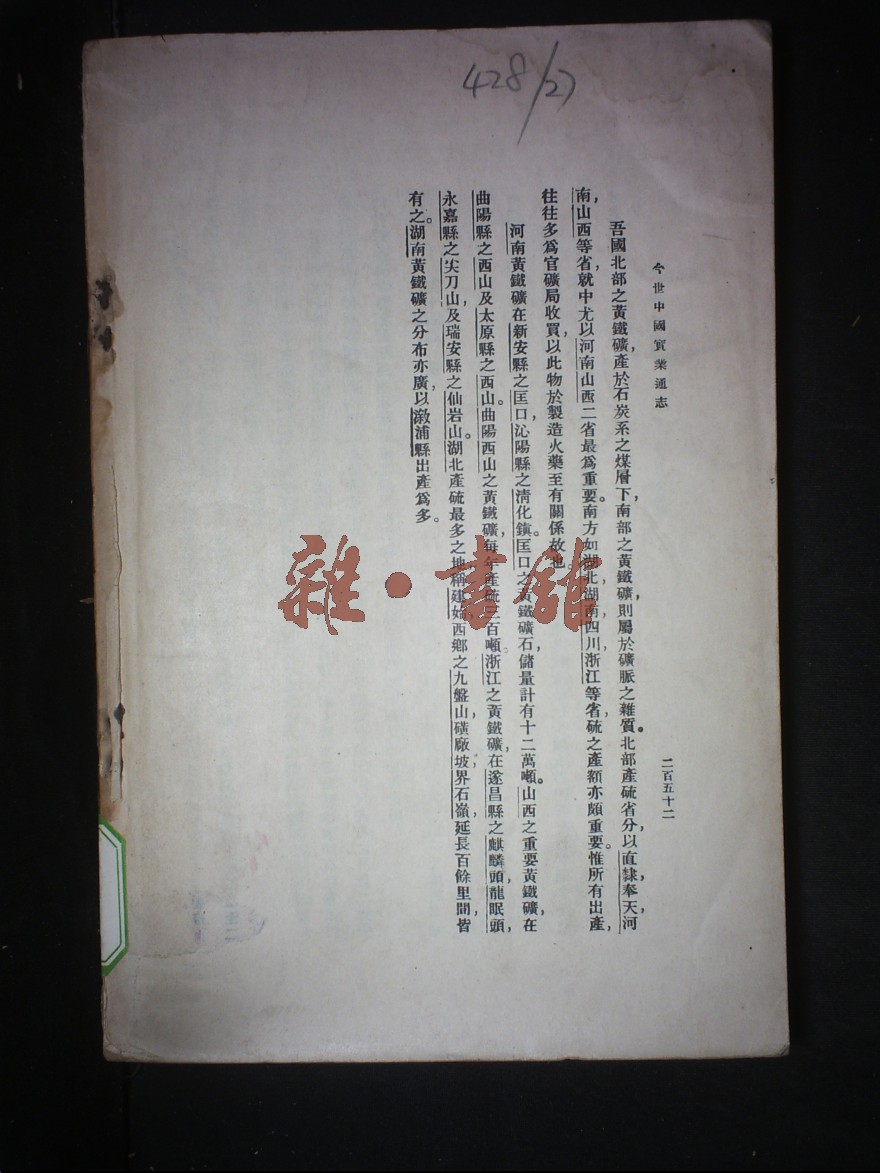 428/27
今世中國實業通志
二百五十二
吾國北部之黃鐵礦，產於石炭系之煤層下，南部之黃鐵礦，則屬於礦脈之雜質。北部產硫省分，以直隸，奉天，河
南，山西等省，就中尤以河南山西二省最爲重要。南方如湖北，湖南，四川，浙江等省，硫之產額亦頗重要。惟所有出產，
往往多爲官礦局收買，以此物於製造火藥至有關係故也。
河南黃鐵礦在新安縣之匡口，沁陽縣之清化鎮。匡口之黃鐵礦石，儲量計有十二萬噸。山西之重要黃鐵礦，在
曲陽縣之西山及太原縣之西山。曲陽西山之黃鐵礦，每年產硫三百噸。浙江之黃鐵礦，在遂昌縣之麒麟頭，龍眠頭，
永嘉縣之尖刀山，及瑞安縣之仙岩山。湖北產硫最多之地，稱建始西鄉之九盤山，磺廠坡，界石嶺，延長百餘里間，皆
有之。湖南黃鐵礦之分布亦廣，以漵浦縣出產爲多。
雜·書館